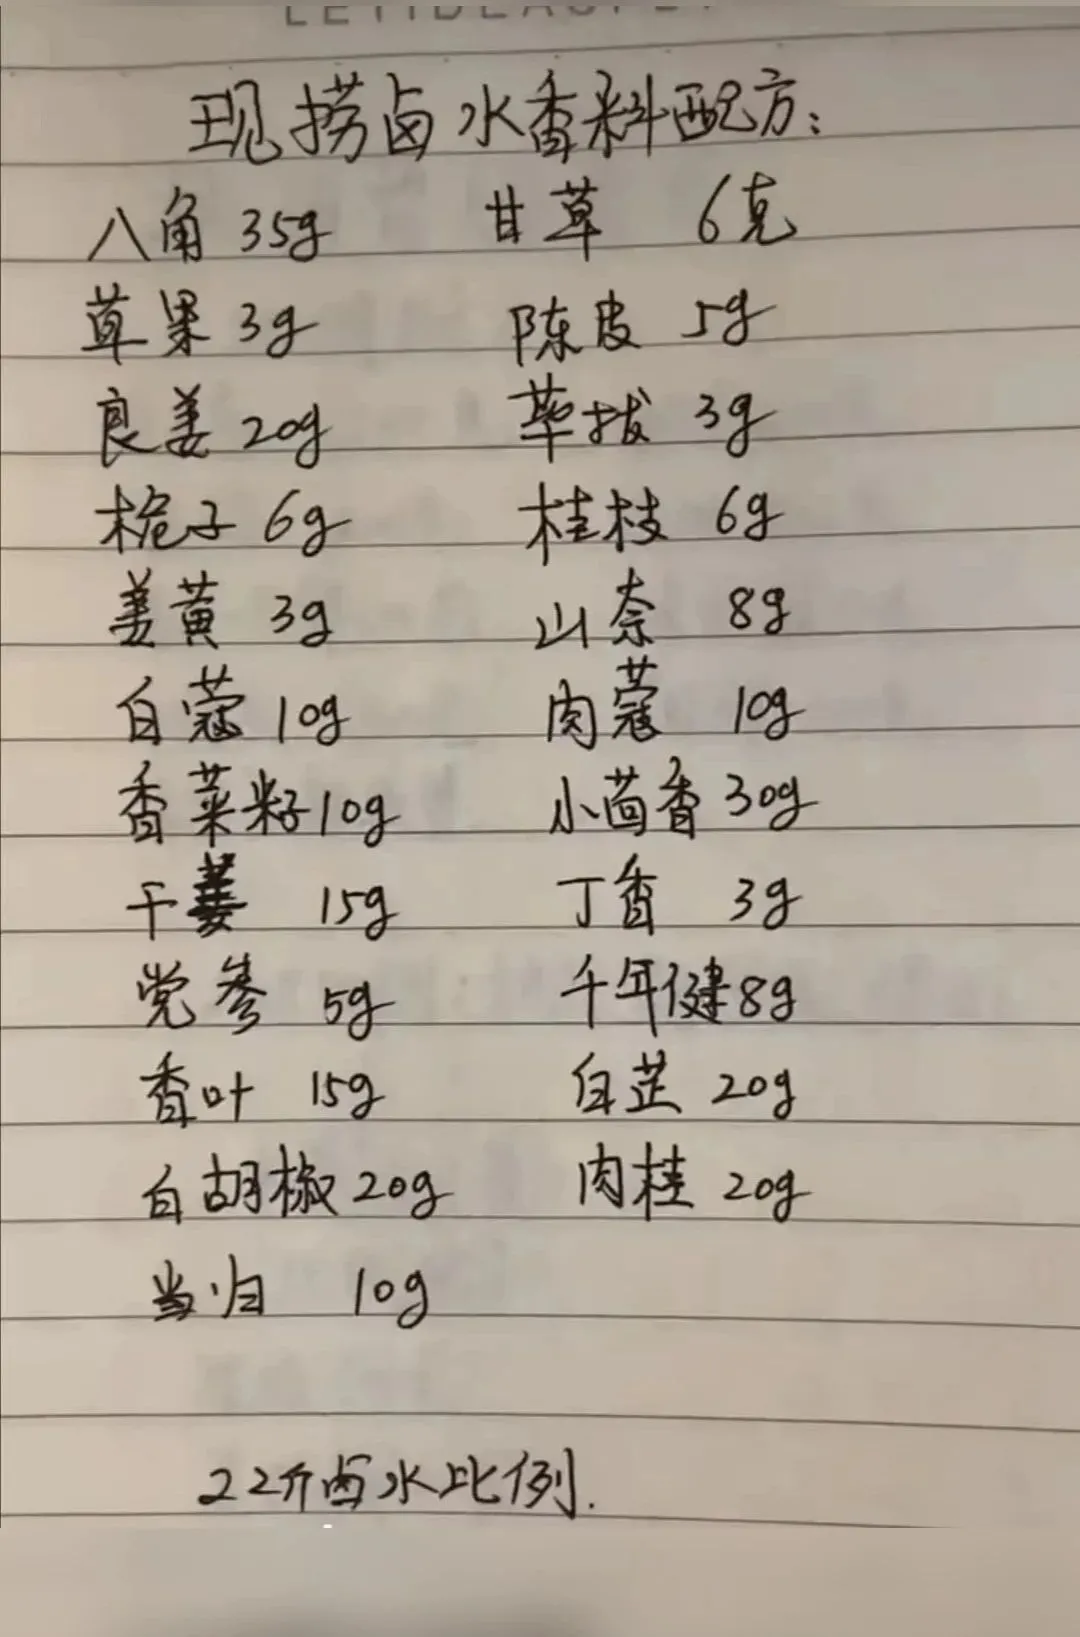 现捞卤水香料配方:
八角 35g 甘草 6克
草果 3g 陈皮 5g
良姜 20g 荜拔 3g
栀子 6g 桂枝 6g
姜黄 3g 山奈 8g
白蔻 10g 肉蔻 10g
香菜籽 10g 小茴香 30g
干姜 15g 丁香 3g
党参 5g 千年健 8g
香叶 15g 白芷 20g
白胡椒 20g 肉桂 20g
当归 10g
22斤卤水比例.